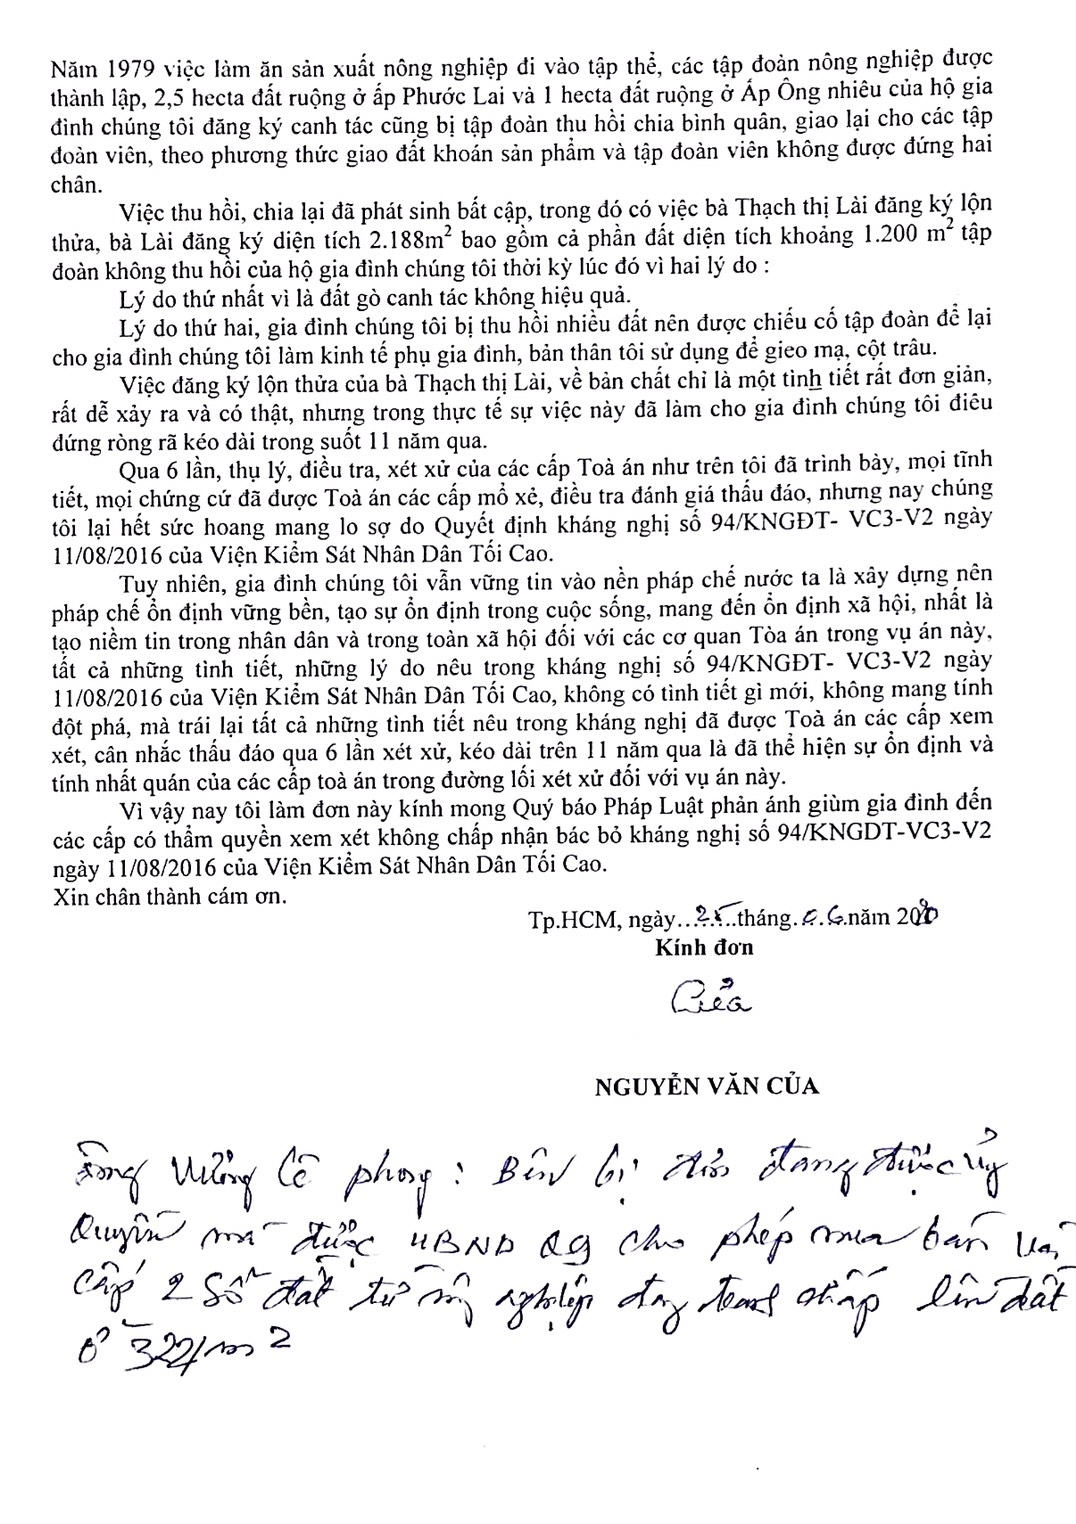 Năm 1979 việc làm ăn sản xuất nông nghiệp đi vào tập thể, các tập đoàn nông nghiệp được
thành lập, 2,5 hecta đất ruộng ở ấp Phước Lai và 1 hecta đất ruộng ở Ấp Ông nhiêu của hộ gia
đình chúng tôi đăng ký canh tác cũng bị tập đoàn thu hồi chia bình quân, giao lại cho các tập
đoàn viên, theo phương thức giao đất khoán sản phẩm và tập đoàn viên không được đứng hai
chân.
Việc thu hồi, chia lại đã phát sinh bất cập, trong đó có việc bà Thạch thị Lài đăng ký lộn
thửa, bà Lài đăng ký diện tích 2.188m² bao gồm cả phần đất diện tích khoảng 1.200 m² tập
đoàn không thu hồi của hộ gia đình chúng tôi thời kỳ lúc đó vì hai lý do :
Lý do thứ nhất vì là đất gò canh tác không hiệu quả.
Lý do thứ hai, gia đình chúng tôi bị thu hồi nhiều đất nên được chiếu cố tập đoàn để lại
cho gia đình chúng tôi làm kinh tế phụ gia đình, bản thân tôi sử dụng để gieo mạ, cột trâu.
Việc đăng ký lộn thửa của bà Thạch thị Lài, về bản chất chỉ là một tình tiết rất đơn giản,
rất dễ xảy ra và có thật, nhưng trong thực tế sự việc này đã làm cho gia đình chúng tôi điêu
đứng ròng rã kéo dài trong suốt 11 năm qua.
Qua 6 lần, thụ lý, điều tra, xét xử của các cấp Toà án như trên tôi đã trình bày, mọi tĩnh
tiết, mọi chứng cứ đã được Toà án các cấp mổ xẻ, điều tra đánh giá thấu đáo, nhưng nay chúng
tôi lại hết sức hoang mang lo sợ do Quyết định kháng nghị số 94/KNGĐT- VC3-V2 ngày
11/08/2016 của Viện Kiểm Sát Nhân Dân Tối Cao.
Tuy nhiên, gia đình chúng tôi vẫn vững tin vào nền pháp chế nước ta là xây dựng nên
pháp chế ổn định vững bền, tạo sự ổn định trong cuộc sống, mang đến ổn định xã hội, nhất là
tạo niềm tin trong nhân dân và trong toàn xã hội đối với các cơ quan Tòa án trong vụ án này,
tất cả những tình tiết, những lý do nêu trong kháng nghị số 94/KNGĐT- VC3-V2 ngày
11/08/2016 của Viện Kiểm Sát Nhân Dân Tối Cao, không có tình tiết gì mới, không mang tính
đột phá, mà trái lại tất cả những tình tiết nêu trong kháng nghị đã được Toà án các cấp xem
xét, cân nhắc thấu đáo qua 6 lần xét xử, kéo dài trên 11 năm qua là đã thể hiện sự ổn định và
tính nhất quán của các cấp toà án trong đường lối xét xử đối với vụ án này.
Vì vậy nay tôi làm đơn này kính mong Quý báo Pháp Luật phản ánh giùm gia đình đến
các cấp có thẩm quyền xem xét không chấp nhận bác bỏ kháng nghị số 94/KNGDT-VC3-V2
ngày 11/08/2016 của Viện Kiểm Sát Nhân Dân Tối Cao.
Xin chân thành cám ơn.
Tp.HCM, ngày...25...tháng.06.năm 2020
Kính đơn
Của
NGUYỄN VĂN CỦA
Ông Vương Lê phong : Bên bị đơn đang được ủy
Quyền mà được UBND Q9 cho phép mua bán và
Cấp 2 Sổ đất từ nông nghiệp đang tranh chấp lên đất
ở 322/m2